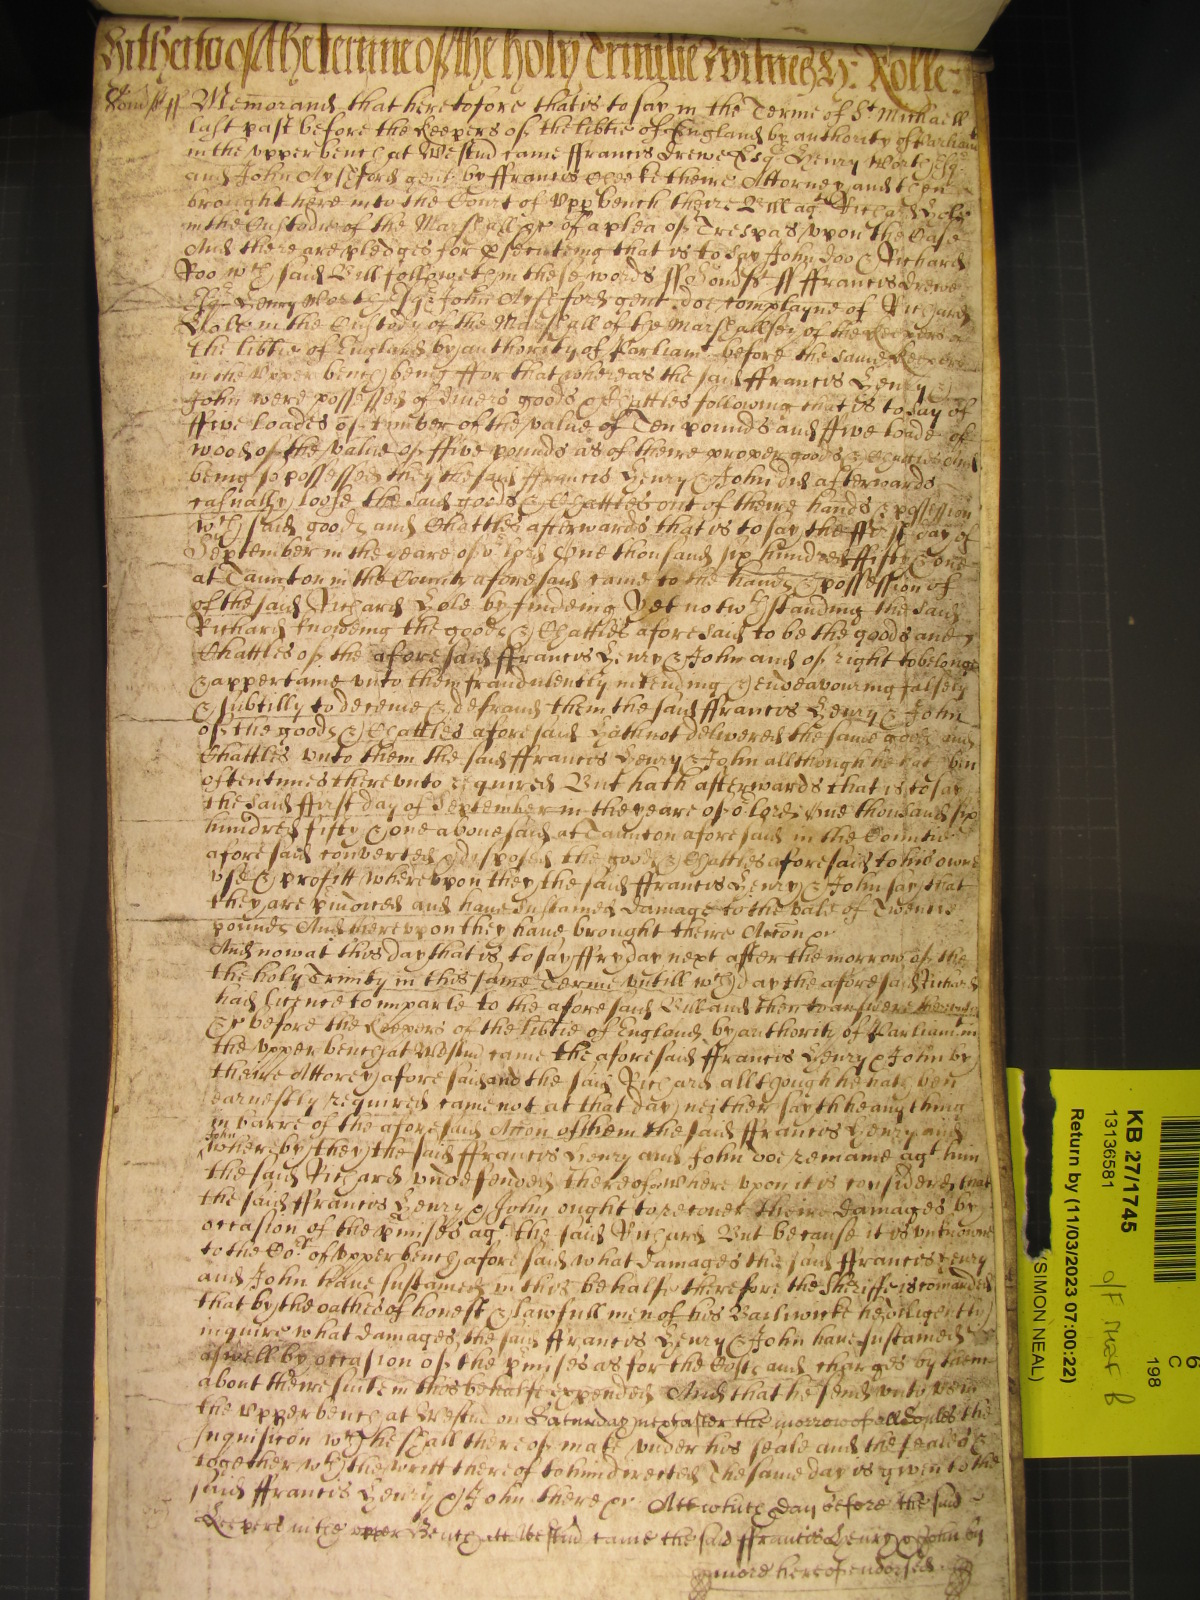 Hitherto of the terme of the holy Trinitie Witnes: Rolle:
Somst ss Memorand that heretofore that is to say in the Terme of St Michaell
last past before the Keepers of the libtie of England by authority of Parliamt
in the upper bench at Westm came ffrancis Drewe Esq Henry Worth Esq
and John Ayshford gent by ffrancis theire Attorney and then
brought here into the Court of upp bench there Bill agt Richard Cole
in the Custodie of the Marshall &c of a plea of Trespas upon the Case
And there are pledges for psecuteing that is to say John Doo & Richard
Roo wch said Bill followeth in these words ss Somst ss ffrancis Drewe
Esq Henry Worth Esq John Aysheford gent doe complayne of Richard
Cole in the Custody of the Marshall of the Marshallsey of the Keepers of
the libtie of England by authority of Parliamt before the same Keepers
in the upper bench being ffor that whereas the said ffrancis Henry &
John were possessed of divers goods & Chattles following that is to say of
ffive loades of timber of the value of Ten pounds and ffive loade of
wood of the value of ffive pounds as of theire proper goods & Chattles And
being so possessed they the said ffrancis Henry & John did afterwards
casually loose the said goods & Chattles out of theire hands & possession
wch said goods and Chattles afterwards that is to say the ffirst day of
September in the yeare of or lord One thousand six hundred ffifty & one
at Taunton in the County aforesaid came to the hands & possession of
of the said Richard Cole by findeing Yet notwthstanding the said
Richard knoweing the goods & Chattles aforesaid to be the goods and
Chattles of the aforesaid ffrancis Henry & John and of right to belonge
& appertaine unto them fraudulently intending & endeavouring falsely
& subtilly to deceive & defraud them the said ffrancis Henry & John
of the goods & Chattles aforesaid hath not delivered the same goods and
Chattles unto them the said ffrancis Henry & John allthough he hath bin
oftentimes thereunto required But hath afterwards that is to say
the said ffirst day of September in the yeare of or lord One thousand six
hundred fifty & one abovesaid at Taunton aforesaid in the Countie
aforesaid converted & disposed the goods & Chattles aforesaid to his owne
use & profitt whereupon they the said ffrancis Henry & John say that
they are piudiced and have sustained damage to the vale of Twentie
pounds And thereupon they have brought theire Accon &c
And now at this day that is to say ffryday next after the morrow of the
the holy Trinity in this same Terme untill wch day the aforesaid Richard
had licence to imparle to the aforesaid Bill and then to answere
&c before the Keepers of the libtie of England by authority of Parliamt in
the upper bench at Westm came the aforesaid ffrancis Henry & John by
theire Attorey aforesaid and the said Richard allthough he hath ben
earnestly required came not at that day neither sayth he any thing
in barre of the aforesaid Accon of them the said ffrancis Henry and
John
whereby they the said ffrancis Henry and John doe remaine agt him
the said Richard undefended thereof Whereupon it is considered that
the said ffrancis Henry & John ought to recover theire damages by
occasion of the pmises agt the said Richard But because it is unknowne
to the Cort of upper bench aforesaid what damages the said ffrancis Henry
and John have sustained in this behalfe therefore the Sheriffe is comanded
that by the oathes of honest & lawfull men of his Bailiwicke he diligently
inquire what damages the said ffrancis Henry & John have sustained
aswell by occasion of the pmises as for the Costs and charges by them
about theire suite in this behalfe expended And that he send unto
the upper bench at Westm on Saturday next after the morrow of all Soules the
Inquisicon wch he shall thereof make under his seale and the seales &c
together wth the writt thereof to him directed The same day is given to the
said ffrancis Henry & John there &c Att which day before the said
Keepers in the upper Bench att Westm came the said ffrancis Henry & John by
more hereof endorsed
KB 27/1745
13136581
Return by (11/03/2023 07:00:22)
(SIMON NEAL)
6
C
198